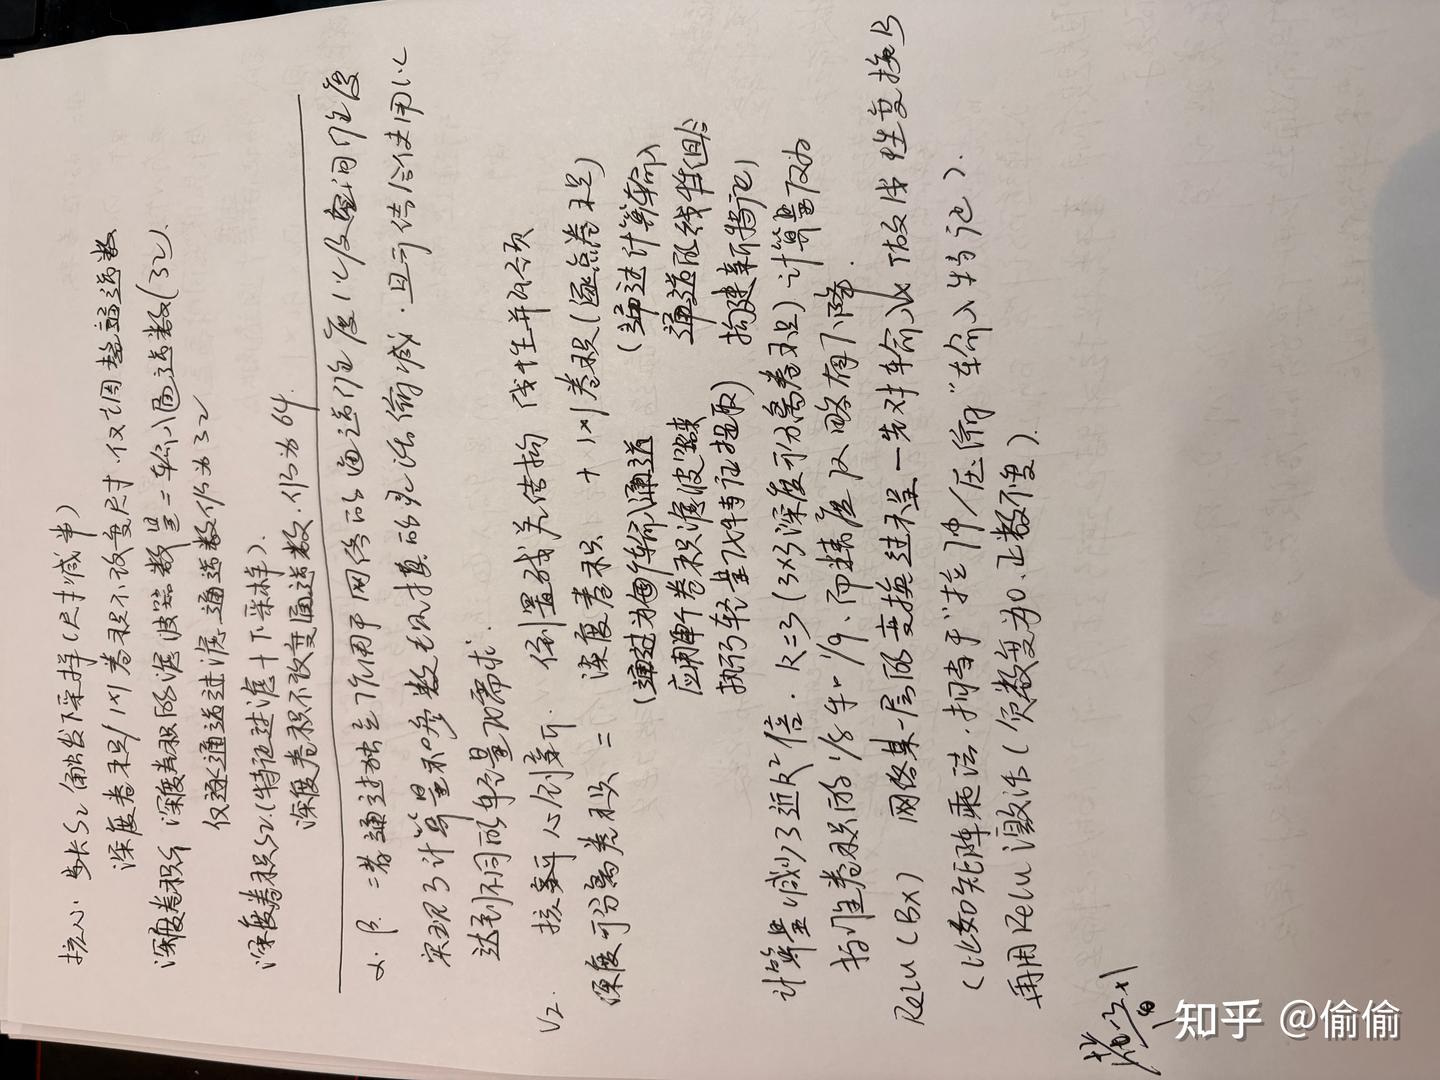 核心: 步长S2触发下采样(尺寸减半)
深度卷积/1x1卷积不改变尺寸.仅调整通道数
深度卷积 深度卷积的滤波器数量=输入通道数(32).
仅逐通道过滤,通道数仍为32
深度卷积S2.(特征过滤+下采样).
深度卷积不改变通道数.仍为64
α. β. 二者通过独立作用于网络的通道维度以及空间维度
实现了计算量和参数规模的灵活缩减.且可结合使用以
达到不同的轻量化需求.
V2. 核心创新. 倒置残差结构 线性瓶颈
深度可分离卷积 = 深度卷积 + 1x1卷积(逐点卷积)
(通过为每个输入通道
应用单个卷积滤波器来
执行轻量化特征提取)
(通过计算输入
通道的线性组合
构建新特征)
计算量减少了近k²倍. k=3(3x3深度可分离卷积)计算量仅为
标准卷积的1/8和1/9.而精度仅略有下降.
ReLU(Bx) 网络某一层的变换过程—先对输入x做线性变换B
(比如矩阵乘法.相当于"拉伸/压缩"输入特征).
再用ReLU激活(负数变为0.正数不变).
知乎 @偷偷